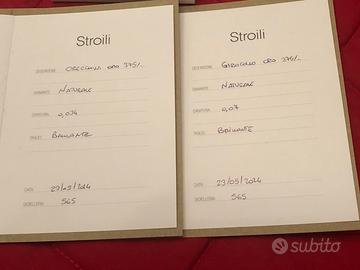 Stroili
DESCRIZIONE ORECCHINI ORO 375/..
DIAMANTE NATURALE
CARATURA 0,034
TAGLIO BRILLANTE
DATA 23/05/2024
GIOIELLERIA 565
Stroili
DESCRIZIONE GIROCOLLO ORO 375/..
DIAMANTE NATURALE
CARATURA 0,07
TAGLIO BRILLANTE
DATA 23/05/2024
GIOIELLERIA 565
subito